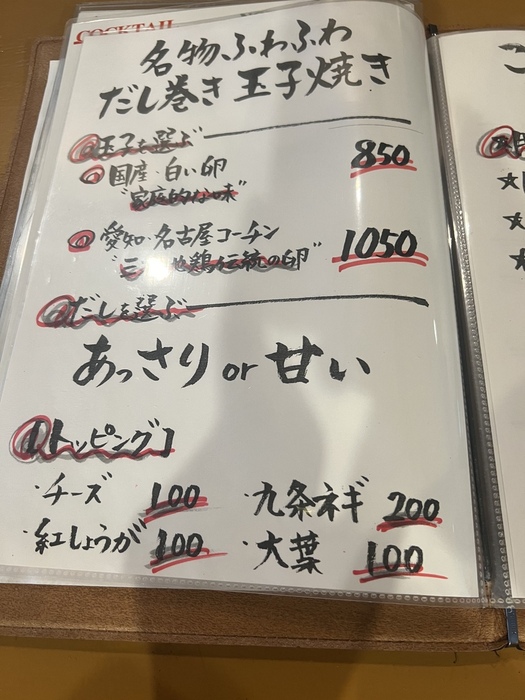 COCKTAIL
名物ふわふわ
だし巻き玉子焼き
玉子を選ぶ
国産・白い卵 850
"家庭的な味"
愛知・名古屋コーチン 1050
地鶏伝統の卵"
だしを選ぶ
あっさり or 甘い
トッピング
・チーズ 100 ・九条ネギ 200
・紅しょうが 100 ・大葉 100